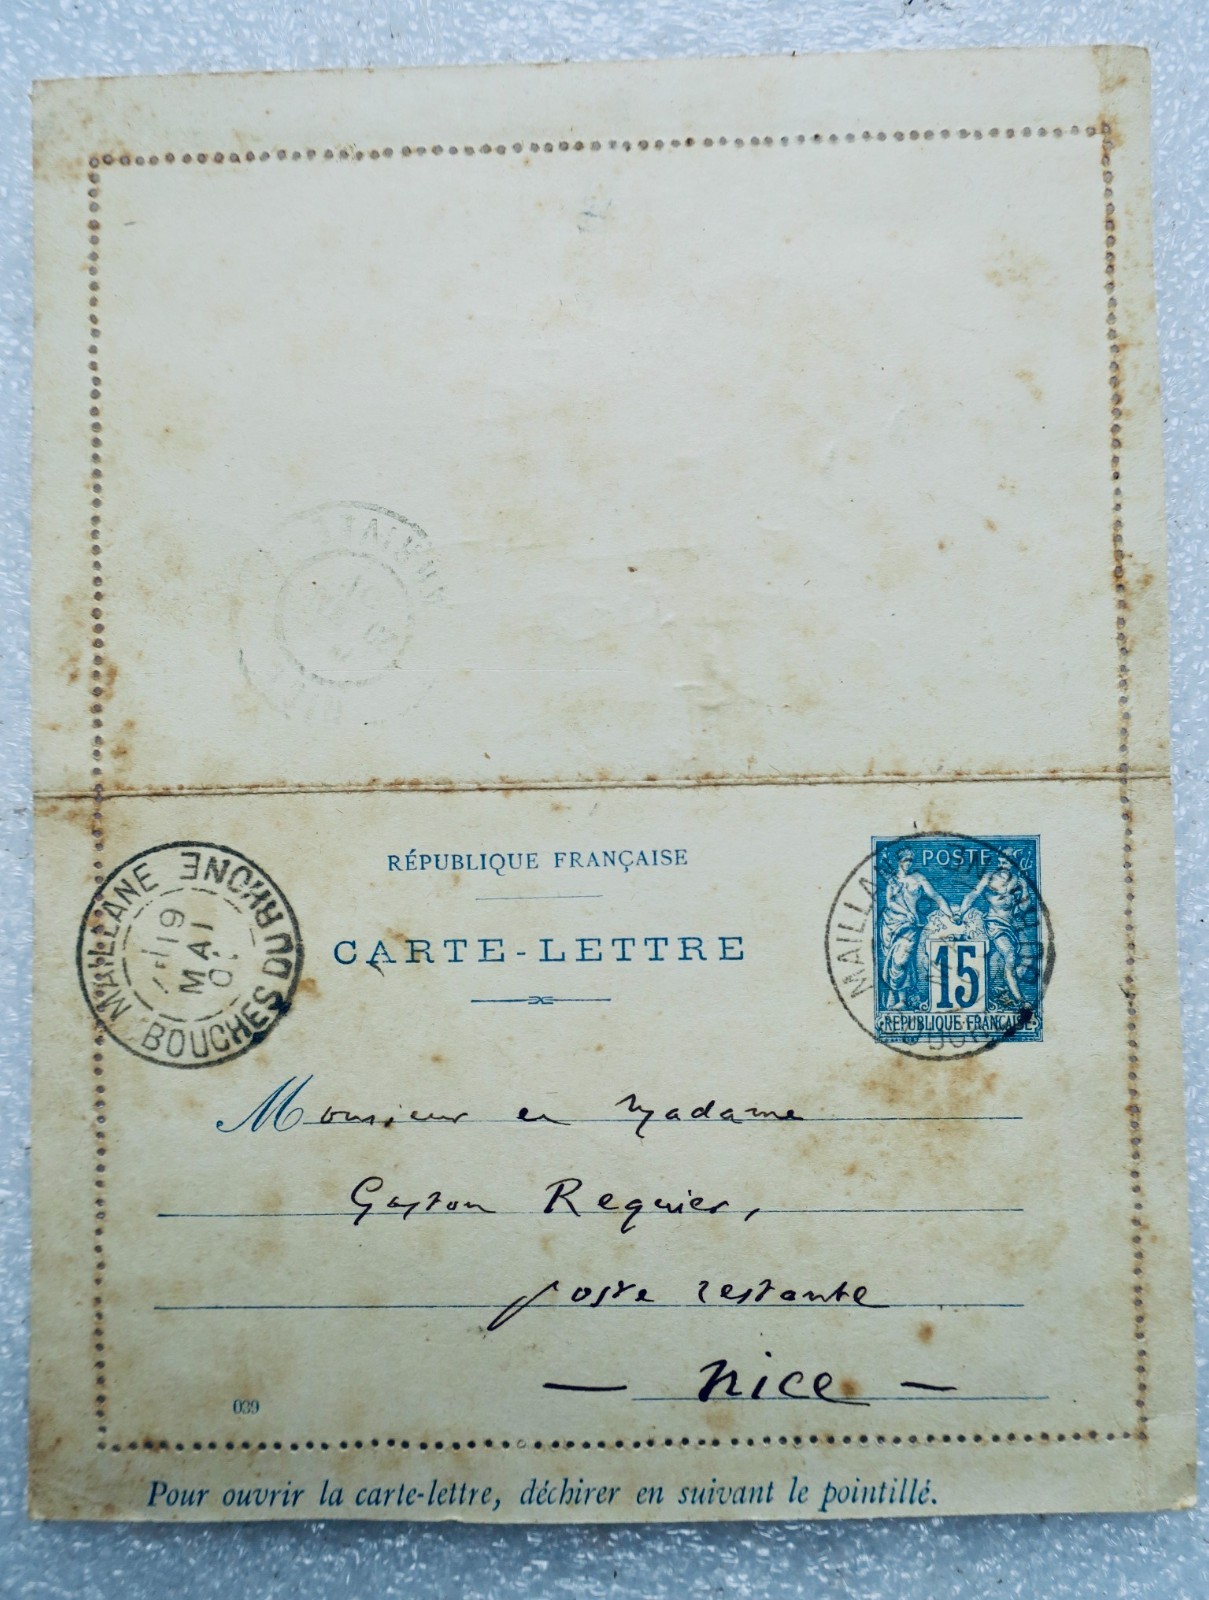 RÉPUBLIQUE FRANÇAISE
CARTE-LETTRE
POSTE
15
RÉPUBLIQUE FRANÇAISE
MAILLANE
BOUCHES DU RHONE
19
MAI
MAILLANE
Monsieur et Madame
Gaston Requier,
poste restante
— Nice —
039
Pour ouvrir la carte-lettre, déchirer en suivant le pointillé.